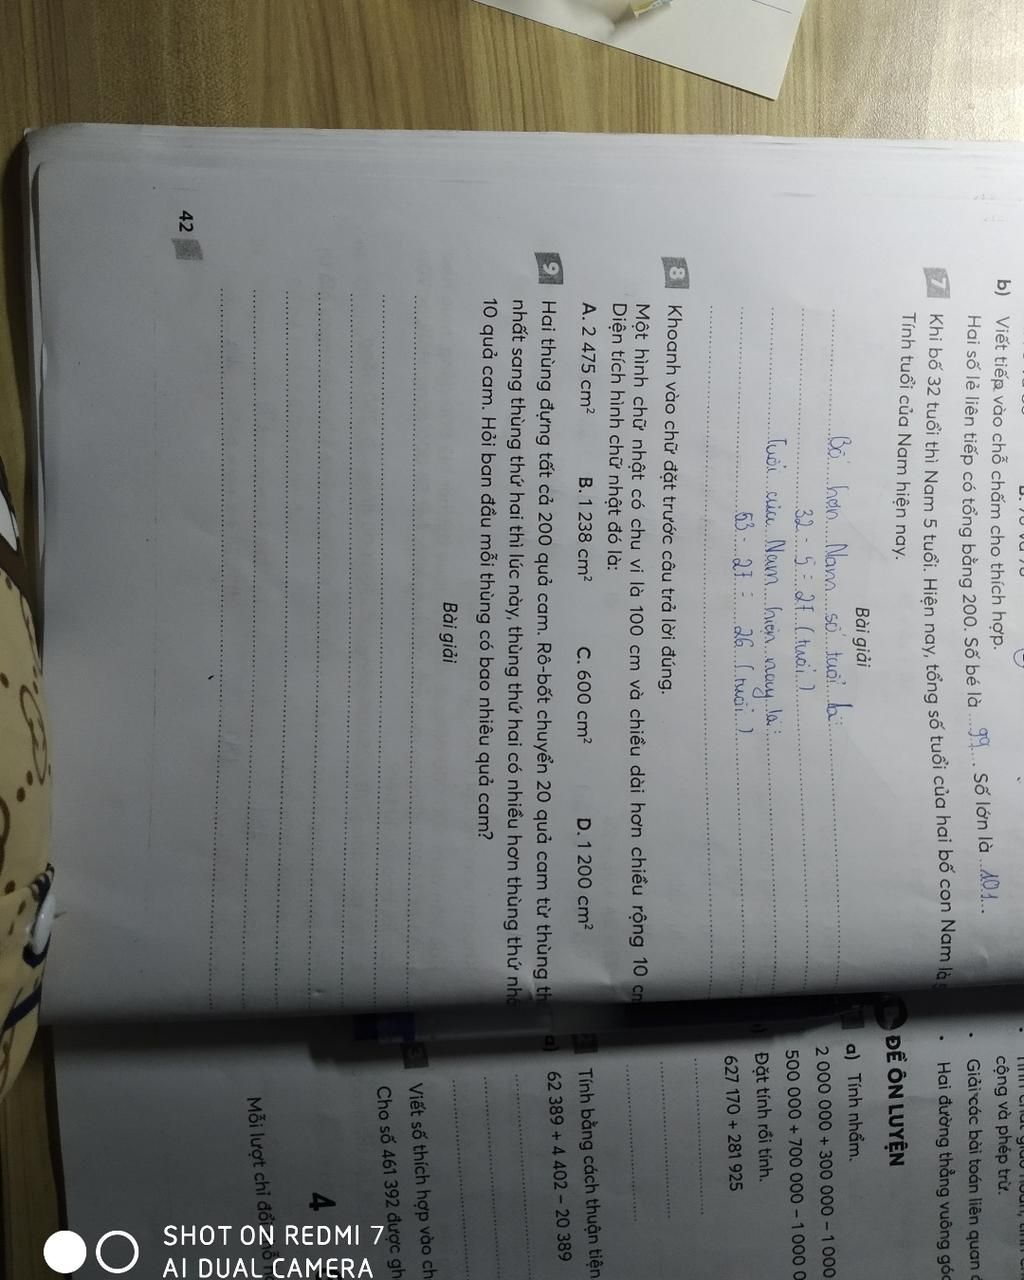 b) Viết tiếp vào chỗ chấm cho thích hợp.
Hai số lẻ liên tiếp có tổng bằng 200. Số bé là 99. Số lớn là 101.
7 Khi bố 32 tuổi thì Nam 5 tuổi. Hiện nay, tổng số tuổi của hai bố con Nam là
Tính tuổi của Nam hiện nay.
Bài giải
Bố hơn Nam số tuổi là:
32 - 5 = 27 (tuổi)
Tuổi của Nam hiện nay là:
53 - 27 = 26 (tuổi)
8 Khoanh vào chữ đặt trước câu trả lời đúng.
Một hình chữ nhật có chu vi là 100 cm và chiều dài hơn chiều rộng 10
Diện tích hình chữ nhật đó là:
A. 2 475 cm² B. 1 238 cm² C. 600 cm² D. 1 200 cm²
9 Hai thùng đựng tất cả 200 quả cam. Rô-bốt chuyển 20 quả cam từ thùng
nhất sang thùng thứ hai thì lúc này, thùng thứ hai có nhiều hơn thùng thứ
10 quả cam. Hỏi ban đầu mỗi thùng có bao nhiêu quả cam?
Bài giải
42
cộng và phép trừ.
• Giải các bài toán liên quan
• Hai đường thẳng vuông
ĐỀ ÔN LUYỆN
a) Tính nhẩm.
2 000 000 + 300 000 – 1 000
500 000 + 700 000 – 1 000
Đặt tính rồi tính.
627 170 + 281 925
2 Tính bằng cách thuận tiện
a) 62 389 + 4 402 – 20 389
3 Viết số thích hợp vào
Cho số 461 392 được
4
Mỗi lượt chỉ
SHOT ON REDMI 7
AI DUAL CAMERA